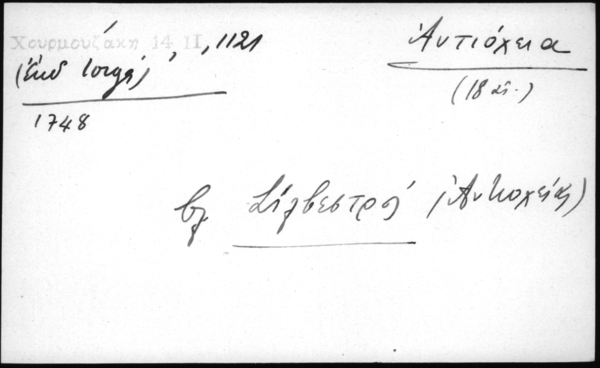 Χουρμουζάκη 14 II, , 1121
(Ἐκδ Ἰόργα)
1748
Ἀντιόχεια
(18 αἰ.)
βλ Σίλβεστρος (Ἀντιοχείας)